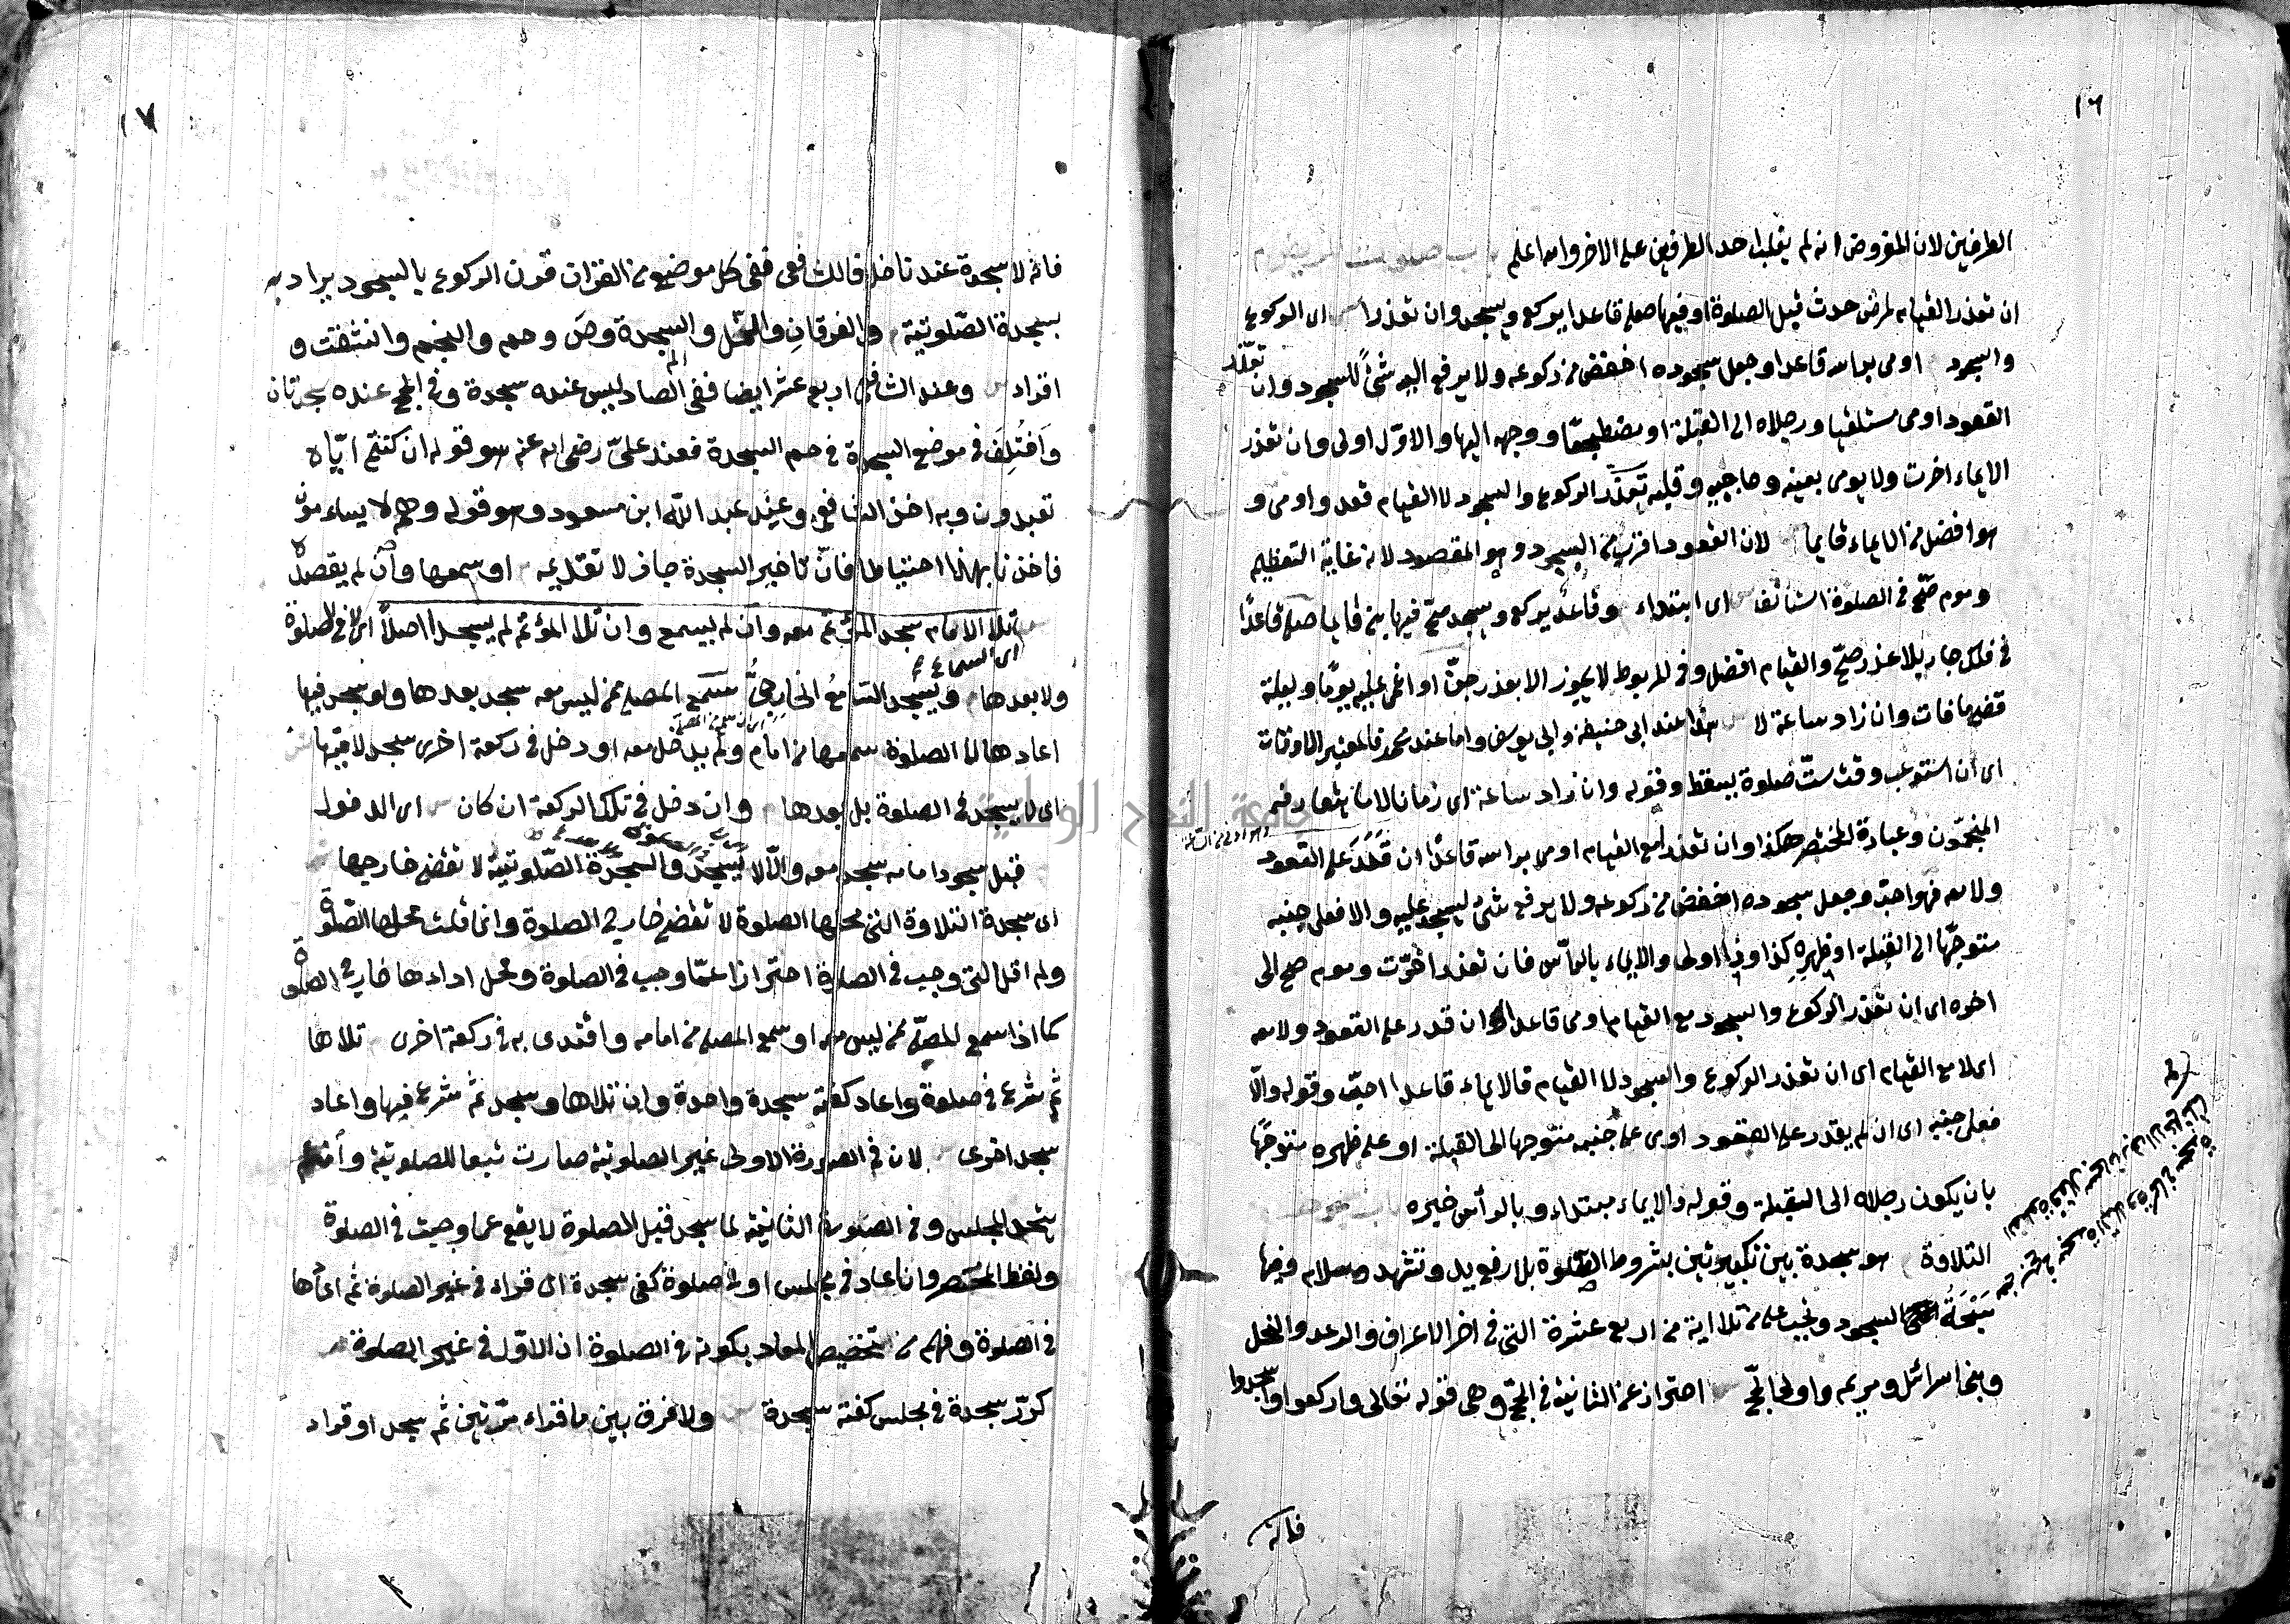 ١٦
الطرفين لان المفروض انه لم يغلب احد الطرفين على الاخر والله اعلم باب صلوت المريض م
ان تعذر القيام لمرض حدث قبل الصلوة او فيها صلى قاعدا يركع ويسجد وان تعذرا ش اى الركوع
والسجود اومى براسه قاعدا وجعل سجوده اخفض من ركوعه ولا يرفع اليه شئ للسجود وان تعذّر
القعود اومى مستلقيا ورجلاه الى القبلة او مضطجعا ووجهه اليها والاوّل اولى وان تعذر
الايماء اخرت ولا يومى بعينه وحاجبيه وقلبه تعذّر الركوع والسجود لا القيام قعد واومى و
هو افضل من الايماء قايما لان القعود اقرب من السجود وهو المقصود لانه غاية التعظيم
وموم صحّ فى الصلوة استأنف ش اى ابتداء وقاعد يركع ويسجد صحّ فيها بنى قايما صلى قاعدًا
فى فلك جار بلا عذر صحّ والقيام افضل وفى المربوط لا يجوز الا بعذر جنّ او اغمى عليه يومًا وليلة
قضى ما فات وان زاد ساعة لا ش هذا عند ابى حنيفة وابى يوسف واما عند محمد فالمعتبر الاوقات
اى ان استوعب وقت ستّ صلوة يسقط وقوله وان زاد ساعة اى زمانا لا ما يتعارفه
المنجمّون وعبارة المختصر هكذا وان تعذرا مع القيام اومى براسه قاعدًا ان قَدَرَ على القعود
ولا معه فهو احبّ وجعل سجوده اخفض من ركوعه ولا يرفع شئ ليسجد عليه والا فعلى جنبه
متوجّها الى القبلة او ظهره كذا وذا اولى والايماء بالرأس فان تعذر اخّرت وموم صح الى
اخره اى ان تعذر الركوع والسجود مع القيام اومى قاعدا ان قدر على القعود ولا معه
اى لا مع القيام اى ان تعذر الركوع والسجود لا القيام فالايماء قاعدا احبّ وقوله والّا
فعلى جنبه اى ان لم يقدر على القعود اومى على جنبه متوجها الى القبلة او على ظهره متوجّها
بان يكون رجلاه الى القبلة وقوله والايماء مبتداء وبالرأس خبره باب سجود
التلاوة م هو سجدة بين تكبيرتين بشروط الصلوة بلا رفع يد وتشهد وسلام وفيها
سُبْحَةُ السجود وتجب على من تلا اية من اربع عشرة التى فى اخر الاعراف والرعد والنحل
وبنى اسرائل ومريم واولى الحجّ ش احتراز عن الثانية فى الحجّ وهى قوله تعالى واركعوا واسجدوا
فانه
١٧
فانه لا سجدة عندنا خلافا للشافعى ففى كل موضع من القران قرن الركوع بالسجود يراد به
سجدة الصّلوتية م والفرقانِ والنّمل والم السجدة وصَ وحم والنجم وانشقت و
اقراء ش وعند الشافعى اربع عشر ايضا ففى الصاد ليس عنده سجدة وفى الحج عنده سجدتان
وَاختُلِفَ فى موضع السجدة فى حم السجدة فعند علىّ رضى الله عنه هو قوله ان كنتم ايّاه
تعبدون وبه اخذ الشافعى وعند عبد الله ابن مسعود هو قوله وهم لا يساءمون
فاخذنا بهذا احتياطا فانّ تاخير السجدة جاز لا تقديمه م او سمعها وان لم يقصده
تلا الامام سجد المؤتم معه وان لم يسمع وان تلا المؤتم لم يسجد اصلاً اى لا فى الصلوة
اى السماع
ولا بعدها م ويسجد السّامعُ الخارجىُّ سمع المصلى ممن ليس معه سجد بعدها ولو سجد فيها
اعادها لا الصلوة سمعها من امام ولم يدخل معه او دخل فى ركعة اخرى سجد لا فيها ش
اى لا يسجد فى الصلوة بل بعدها م وان دخل فى تلك الركعة ان كان ش اى الدخول
قبل سجود امامه سجد معه والّا لا يسجد والسجدة الصّلوتية لا تقضى خارجها ش
اى سجدة التلاوة التى محلها الصلوة لا تقضى خارج الصلوة وانما قلت محلها الصّلوة
ولم اقل التى وجبت فى الصلوة احترازا عمّا وجب فى الصلوة ومحل اداءها خارج الصلوة
كما اذا سمع المصلّى ممن ليس معه او سمع المصلى من امامه واقتدى به فى ركعة اخرى م تلاها
ثم شرع فى صلوة واعاد كفته سجدة واحدة وان تلاها وسجد ثم شرع فيها واعاد
سجد اخرى ش لان فى الصورة الاولى غير الصلوتية صارت تبعا للصلوتية وان لم
يتحد المجلس وفى الصورة الثانية لما سجد قبل الصلوة لا يقع عما وجبت فى الصلوة
ولفظ المختصر وان اعاد فى مجلس او فى صلوة كفى سجدة اى قراء فى غير الصلوة ثم اعادها
فى الصلوة وفهم من تخصيص المعاد بكونه فى الصلوة ان الاوّل فى غير الصلوة م
كرّر سجدة فى مجلس كفته سجدة ش ولا فرق بين ما قراء مرّتين ثم سجد او قراء